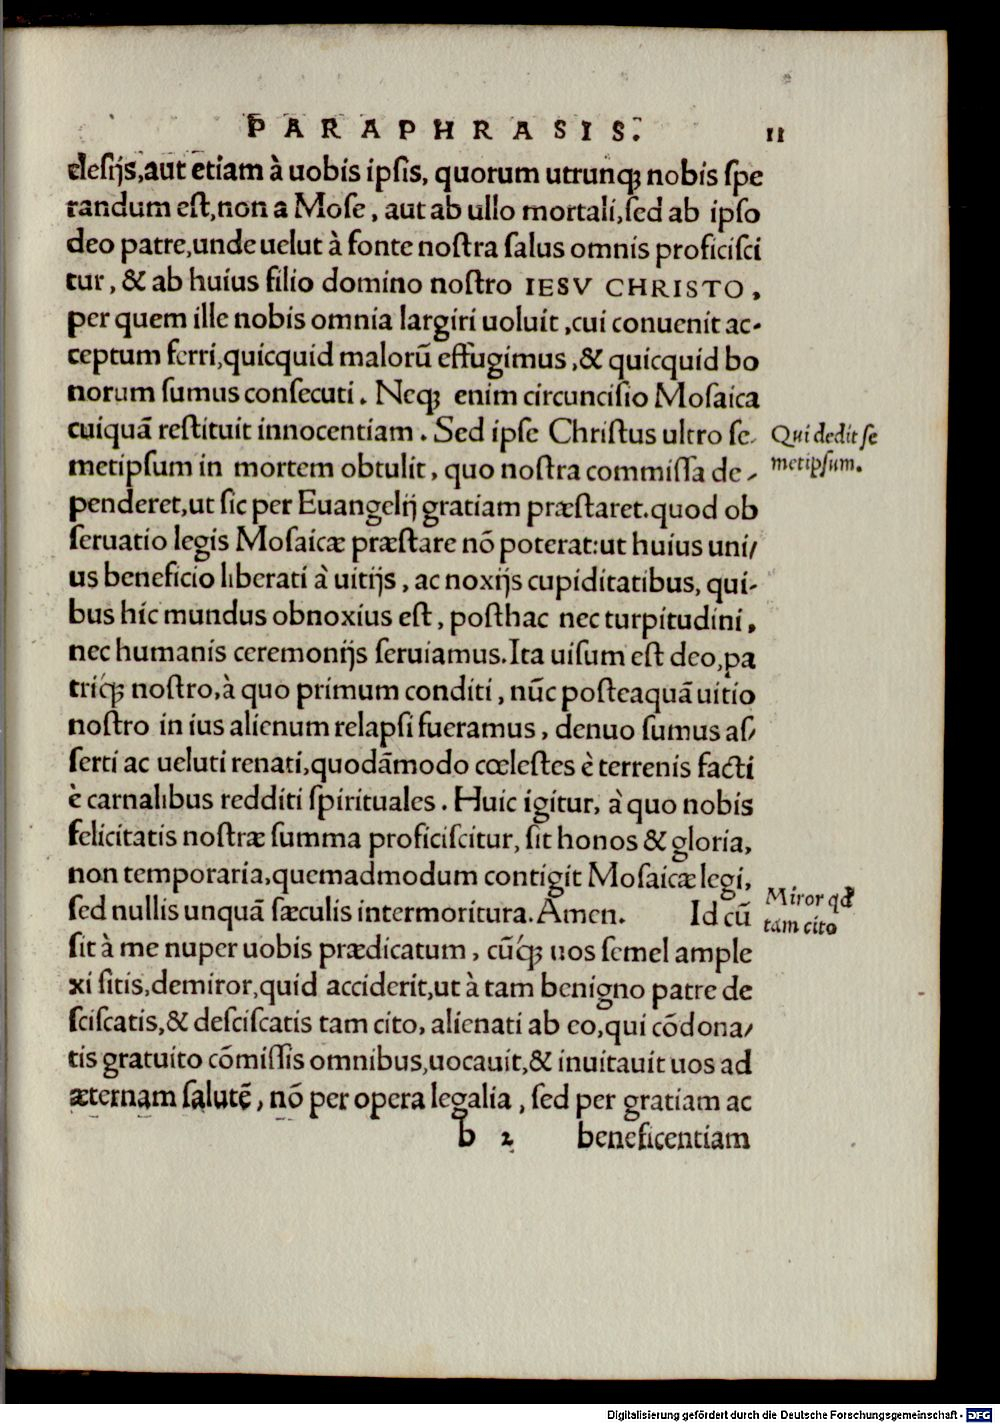 PARAPHRASIS. 11
clesijs,aut etiam à uobis ipsis, quorum utrunq; nobis spe
randum est,non a Mose, aut ab ullo mortali,sed ab ipso
deo patre,unde uelut à fonte nostra salus omnis proficisci
tur, & ab huius filio domino nostro IESV CHRISTO,
per quem ille nobis omnia largiri uoluit,cui conuenit ac-
ceptum ferri,quicquid malorū effugimus,& quicquid bo
norum sumus consecuti. Neq; enim circuncisio Mosaica
cuiquā restituit innocentiam. Sed ipse Christus ultro se-
Qui dedit se
metipsum in mortem obtulit, quo nostra commissa de-
metipsum.
penderet,ut sic per Euangelij gratiam præstaret.quod ob
seruatio legis Mosaicæ præstare nō poterat:ut huius uni/
us beneficio liberati à uitijs, ac noxijs cupiditatibus, qui-
bus hic mundus obnoxius est, posthac nec turpitudini,
nec humanis ceremonijs seruiamus.Ita uisum est deo,pa
triq́; nostro,à quo primum conditi, nūc posteaquā uitio
nostro in ius alienum relapsi fueramus, denuo sumus as/
serti ac ueluti renati,quodāmodo cœlestes è terrenis facti
è carnalibus redditi spirituales. Huic igitur, à quo nobis
felicitatis nostræ summa proficiscitur, sit honos & gloria,
non temporaria,quemadmodum contigit Mosaicæ legi,
Miror qđ
sed nullis unquā sæculis intermoritura.Amen. Id cū
tam cito
sit à me nuper uobis prædicatum, cūq́; uos semel ample
xi sitis,demiror,quid acciderit,ut à tam benigno patre de
sciscatis,& desciscatis tam cito, alienati ab eo,qui cōdona/
tis gratuito cōmissis omnibus,uocauit,& inuitauit uos ad
æternam salutē, nō per opera legalia, sed per gratiam ac
b 2 beneficentiam
Digitalisierung gefördert durch die Deutsche Forschungsgemeinschaft - DFG